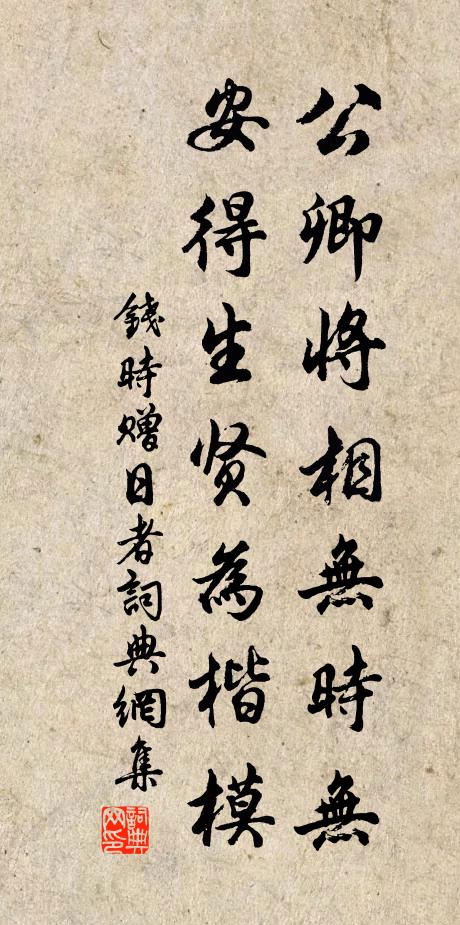 公卿将相無時無
安得生贤為楷模
錢時赠日者詞典網集
詞典网印